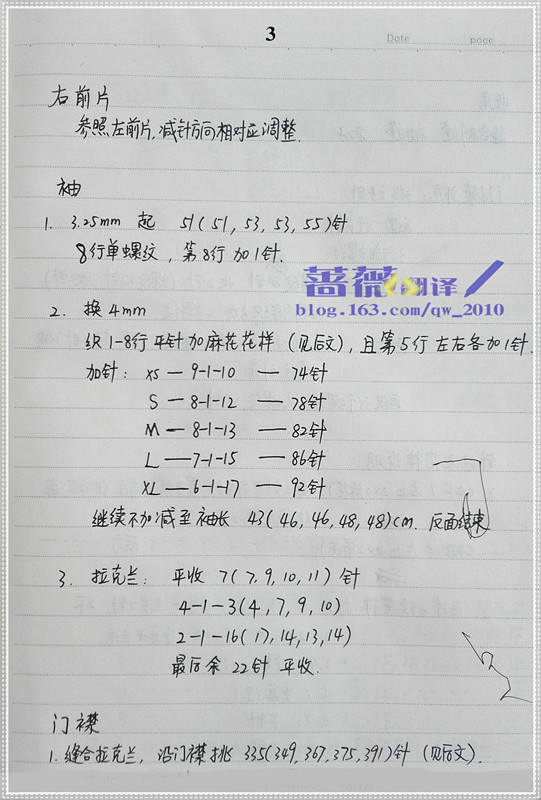 3
Date
page
右前片
参照左前片,减针方向相对应调整.
袖
1. 3.25mm 起 51(51, 53, 53, 55)针
8行单螺纹, 第8行加1针.
蔷薇翻译
blog.163.com/qw_2010
2. 换4mm
织1-8行平针加麻花花样 (见后文), 且第5行左右各加1针.
加针: XS — 9-1-10 — 74针
S — 8-1-12 — 78针
M — 8-1-13 — 82针
L — 7-1-15 — 86针
XL — 6-1-17 — 92针
继续不加减至袖长 43(46, 46, 48, 48)cm. 反面结束
3. 拉克兰: 平收 7(7, 9, 10, 11)针
4-1-3(4, 7, 9, 10)
2-1-16(17, 14, 13, 14)
最后余 22针 平收.
门襟
1. 缝合拉克兰, 沿门襟挑 335(349, 367, 375, 391)针 (见后文).